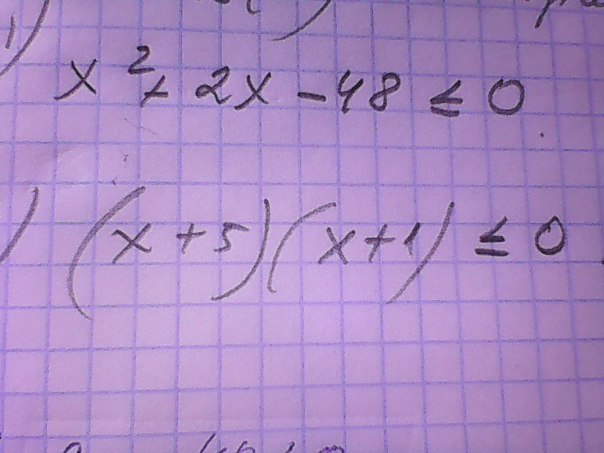 1)
x² + 2x - 48 ≤ 0
) (x + 5)(x + 1) ≤ 0